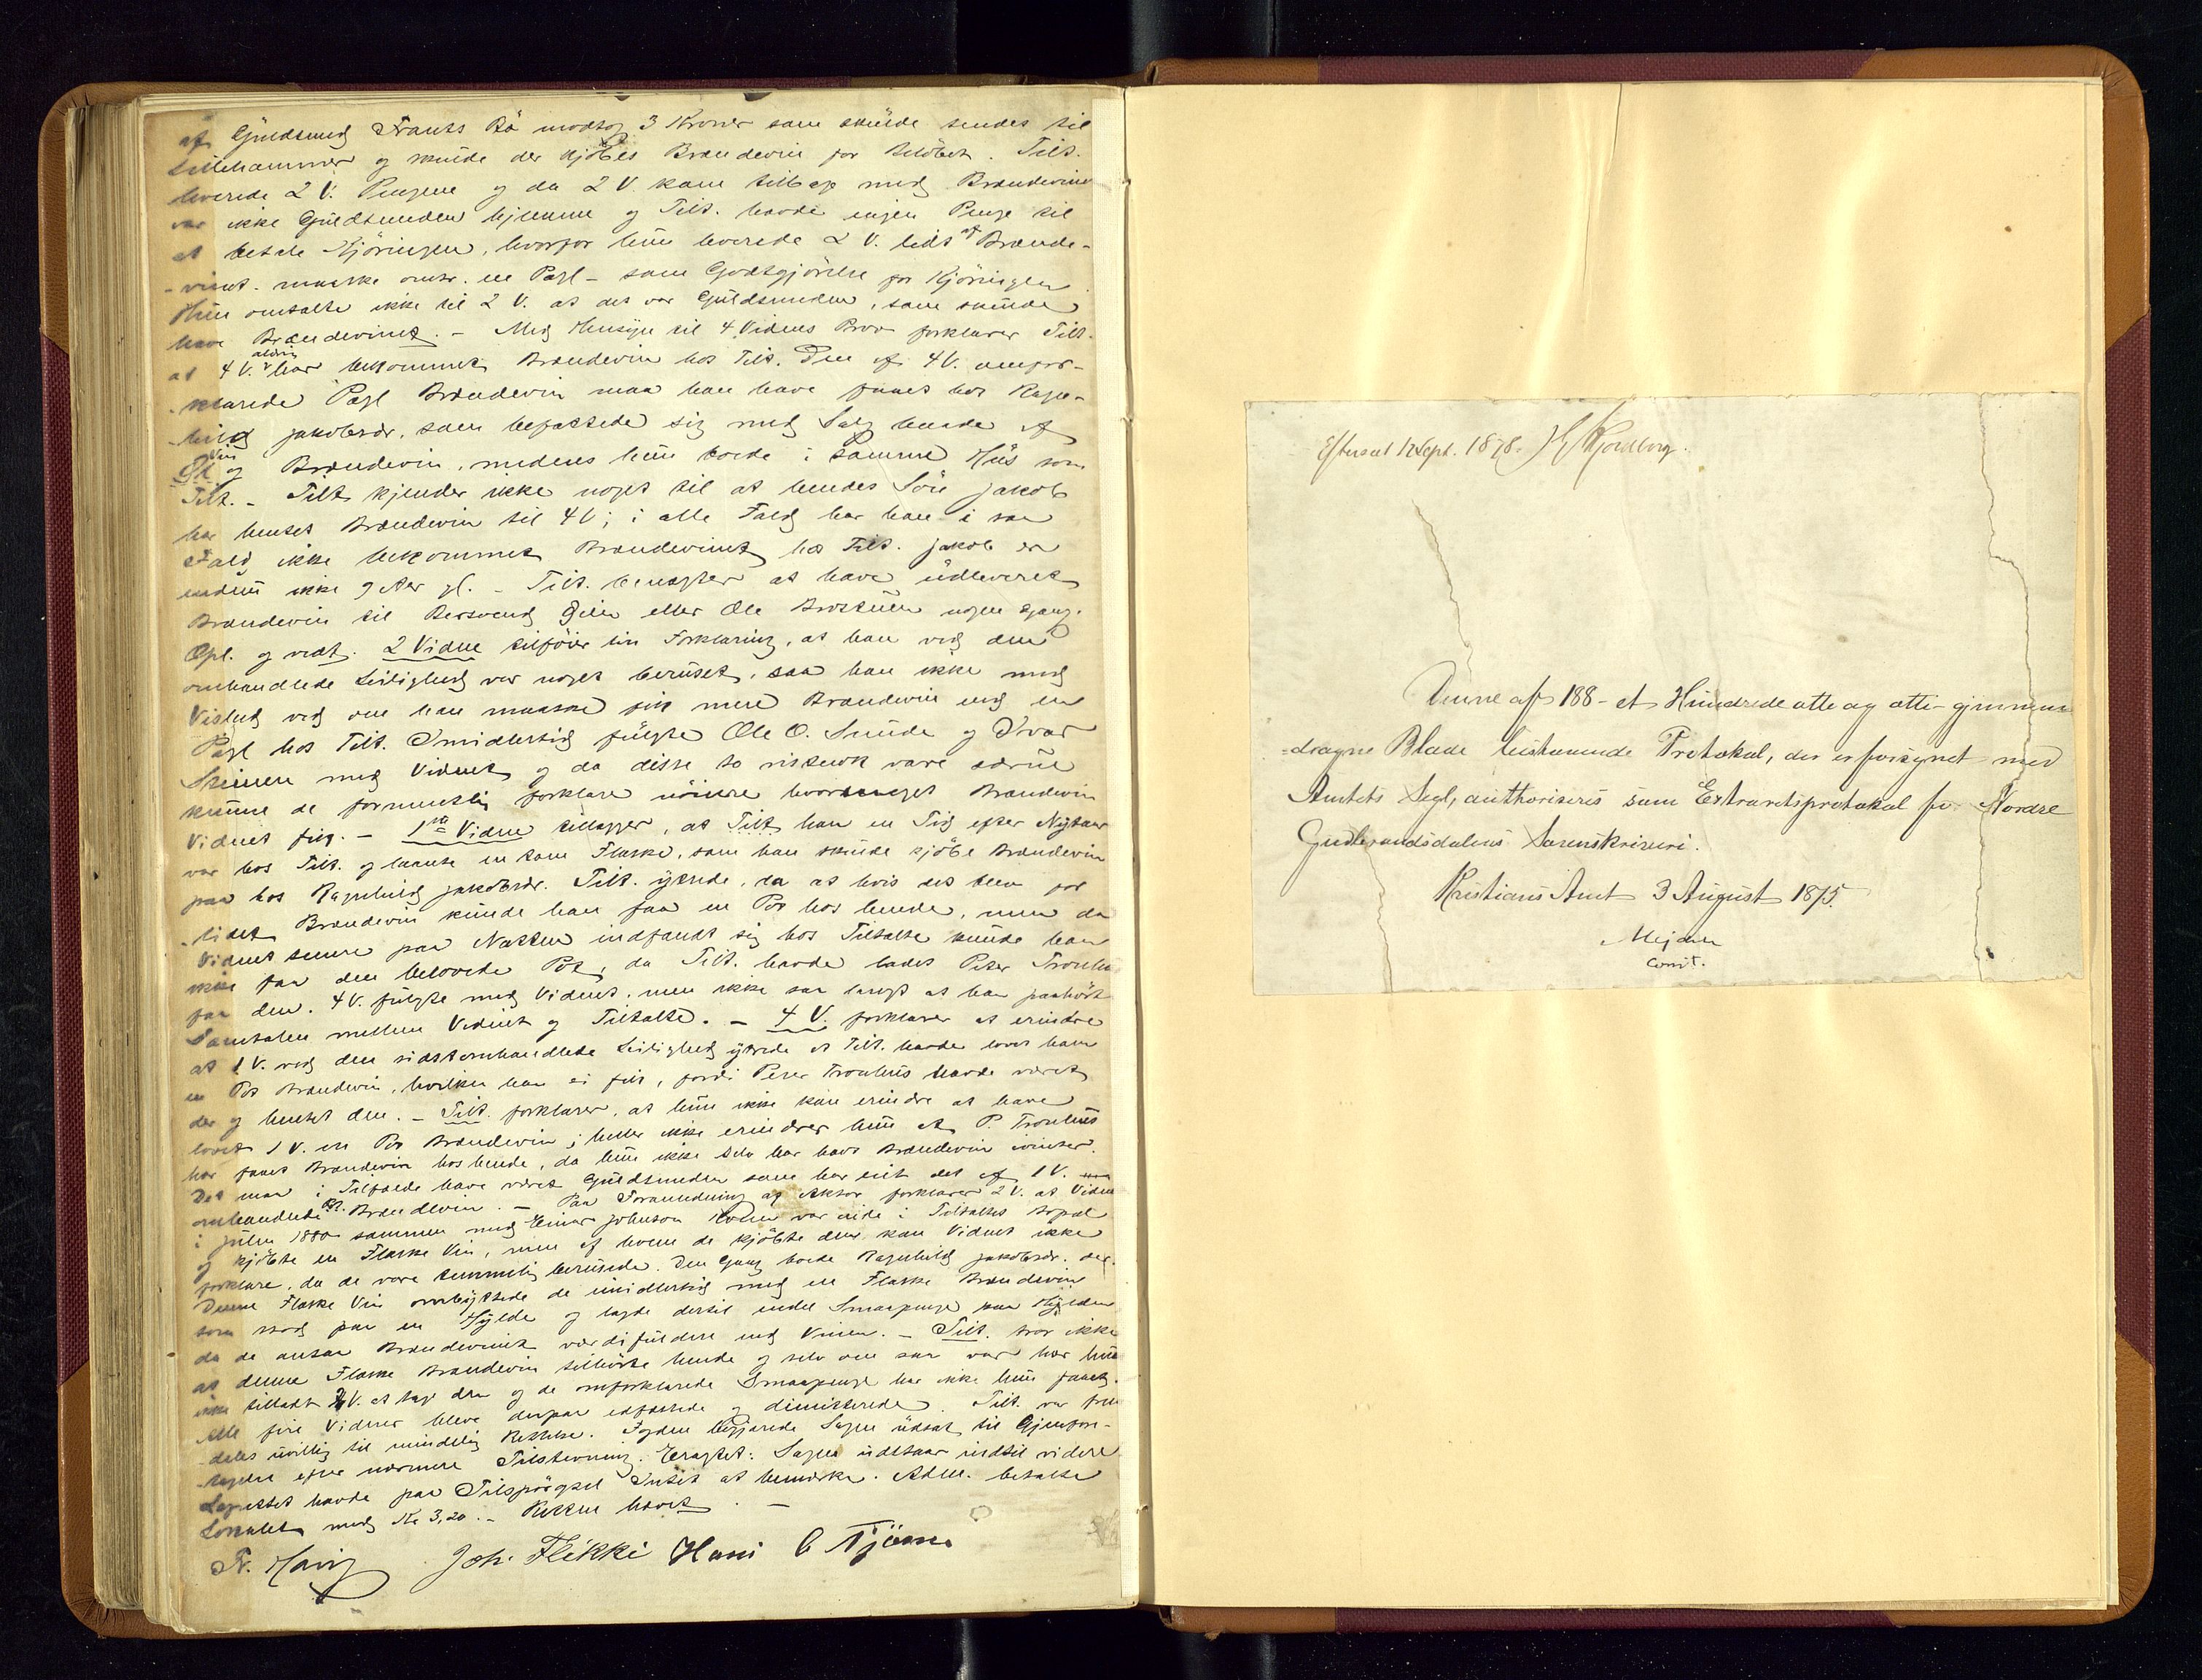 af Guldsmed Frants Bö modtog 3 Kroner som skulde sendes til
Lillehammer og skulde der kjöbes Brændevin for Belöbet. Tilt.
leverede 2 V. Pengene og da 2 V. kom tilbage med Brændevinet
var ikke Guldsmeden hjemme og Tilt. havde ingen Penge til
at betale Kjöringen, hvorfor hun leverede 2 V. lidt af Brænde-
-vinet - maaske omtr. en Pægl - som Godtgjörelse for Kjöringen
Hun omtalte ikke til 2 V. at det var Guldsmeden, som skulde
have Brændevinet. - Med Hensyn til 4 Vidnes Prov forklarer Tilt.
at 4 V. aldrig har bekommet Brændevin hos Tilt. Den af 4 V. omfor-
-klarede Pægl Brændevin maa han have faaet hos Ragn-
-hild Jakobsdr. som befattede sig med Salg baade af
Öl Vin og Brændevin, medens hun boede i samme Hus som
Tilt. - Tilt. kjender ikke noget til at hendes Sön Jakob
har hentet Brændevin til 4 V; i alle Fald har han i saa
Fald ikke bekommet Brændevinet hos Tilt. Jakob er
endnu ikke 9 Aar gl. - Tilt. benægter at have udleveret
Brændevin til Bersvend eller Ole nogen Gang.
Opl. og vedt. 2 Vidne tilföier sin Forklaring, at han ved den
omhandlede Leilighed var noget beruset, saa han ikke med
Vished ved om han maaske fik mere Brændevin end en
Pægl hos Tilt. Imidlertid fulgte Ole O. Sunde og Ivar
med Vidnet og da disse to vistnok vare ædrue
kunne de formentlig forklare nöiere hvormeget Brændevin
Vidnet fik. - 1ste Vidne tillægger, at han en Tid efter Nytaar
var hos Tilt. og laante en tom Flaske, som han skulde kjöbe Brændevin
paa hos Ragnhild Jakobsdr. Tilt. ytrede, da at hvis det blev for
-lidet Brændevin kunde han faa en Pot hos hende, men da
Vidnet senere paa Natten indfandt sig hos Tiltalte kunde han
ikke faa den belovede Pot, da Tilt. havde ladet Peter
faa den. 4 V. fulgte med Vidnet, men ikke saa langt at han paahörte
Samtalen mellem Vidnet og Tiltalte. - 4 V. forklarer at erindre
at 1 V. ved den sidstomhandlede Leilighed ytrede at Tilt. havde lovet ham
en Pot Brændevin, hvilken han ei fik, fordi Peter havde været
der og hentet den. - Tilt. forklarer, at hun ikke kan erindre at have
lovet 1 V. en Pot Brændevin; heller ikke erindrer hun at P.
har faaet Brændevin hos hende, da hun ikke selv har havt Brændevin ivinter.
Det maa i Tilfælde have været Guldsmeden som har eiet det af 1 V.
omhandlede Pt. Brændevin. - Paa Foranledning af Aktor forklarer 2 V. at Vidnet
i Julen 1880 sammen med Einar Johnsen var inde i Tiltaltes
og kjöbte en Flaske Vin, men af hvem de kjöbte den, kan Vidnet ikke
forklare, da de vare temmelig berusede. Den Gang boede Ragnhild Jakobsdr. der.
Denne Flaske Vin ombyttede de imidlertid med en Flaske Brændevin
som stod paa en Hylde og lagde dertil endel Smaapenge paa Hylden
da de ansaa Brændevinet værdifuldere end Vinen. - Tilt. tror ikke
at denne Flaske Brændevin tilhörte hende og selv om saa var har hun
ikke tilladt 2 V. at tage den og de omforklarede Smaapenge har ikke hun faaet.
Alle fire Vidner bleve derpaa edfæstede og dimitterede. Tilt. var frem-
deles uvillig til mindelig Rettelse. Fogden begjærede Sagen udsat til Gjenfore-
-tagelse efter nærmere Tilstevning. Eragtet: Sagen udstaar indtil videre
Lagrettet havde paa Tilspörgsel Intet at bemærke. Adm. betalte
Lokalet med Kr 3,20. - Retten hævet. -
Joh. Flikki Hans

Efterseet 12 Sept. 1878.
Denne af 188 - et Hundrede otte og otti - gjennem-
=dragne Blade bestaaende Protokol, der er forsynet med
Amtets Segl, authoriseres som Extraretsprotokol for Nordre
Gudbrandsdalens Sorenskriveri.
Kristians Amt 3 August 1875.
Mejdell
const.